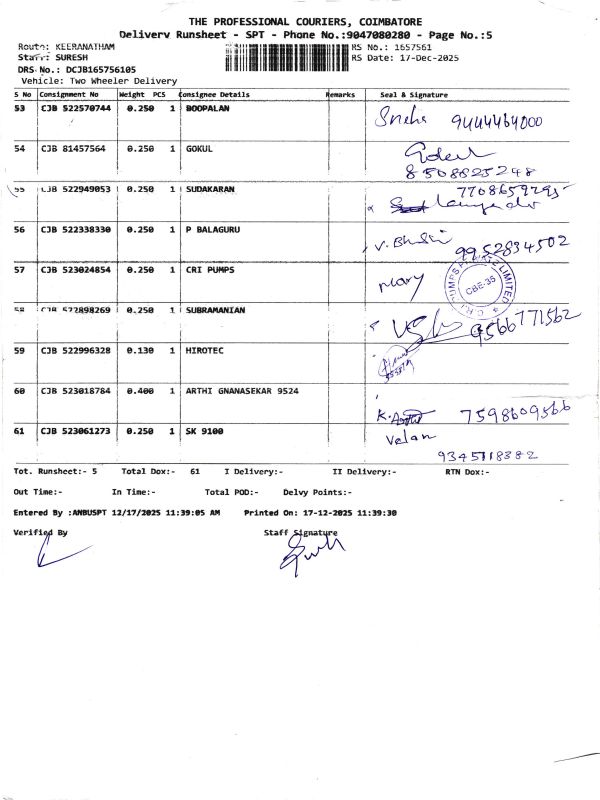 THE PROFESSIONAL COURIERS, COIMBATORE
Delivery Runsheet - SPT - Phone No.:9047080280 - Page No.:5
Route: KEERANATHAM RS No.: 1657561
Staff: SURESH RS Date: 17-Dec-2025
DRS No.: DCJB165756105
Vehicle: Two Wheeler Delivery
S No Consignment No Weight PCS Consignee Details Remarks Seal & Signature
53 CJB 522570744 0.250 1 BOOPALAN Sneha 9444464000
54 CJB 81457564 0.250 1 GOKUL
8508825248
55 CJB 522949053 0.250 1 SUDAKARAN 7708659295
56 CJB 522338330 0.250 1 P BALAGURU V. 9952834502
57 CJB 523024854 0.250 1 CRI PUMPS mary CBE-35
58 CJB 522898269 0.250 1 SUBRAMANIAN 9566771562
59 CJB 522996328 0.130 1 HIROTEC
60 CJB 523018784 0.400 1 ARTHI GNANASEKAR 9524 K. 7598609566
61 CJB 523061273 0.250 1 SK 9100 Velan
9345118382
Tot. Runsheet:- 5 Total Dox:- 61 I Delivery:- II Delivery:- RTN Dox:-
Out Time:- In Time:- Total POD:- Delvy Points:-
Entered By :ANBUSPT 12/17/2025 11:39:05 AM Printed On: 17-12-2025 11:39:30
Verified By Staff Signature